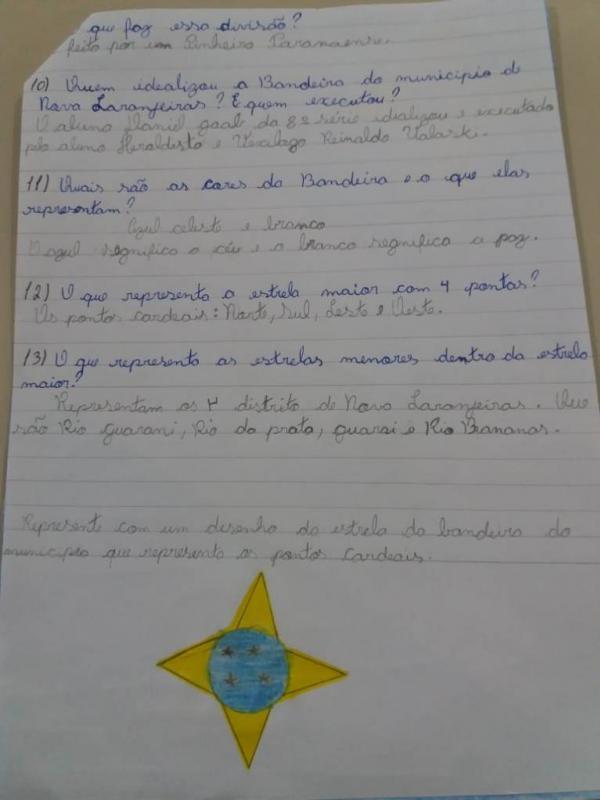 que faz essa divisão?
feito por um Pinheiro Paranaense.
10) Quem idealizou a Bandeira do município de
Nova Laranjeiras? E quem executou?
O aluno Daniel gaal da 8ª série idializou e executado
pelo aluno Heraldisto e Reinaldo Valaski.
11) Quais são as cores da Bandeira e o que elas
representam?
Azul celeste e branco
O azul segnifica o céu e o branco segnifica a paz.
12) O que representa a estrela maior com 4 pontas?
Os pontos cardeais: Norte, Sul, Leste e Oeste.
13) O que representa as estrelas menores dentro da estrela
maior?
Representam os 4 distrito de Nova Laranjeiras. Que
são Rio guarani, Rio da prata, guarai e Rio Bananas.
Represente com um desenho da estrela da bandeira do
município que representa os pontos cardeais.